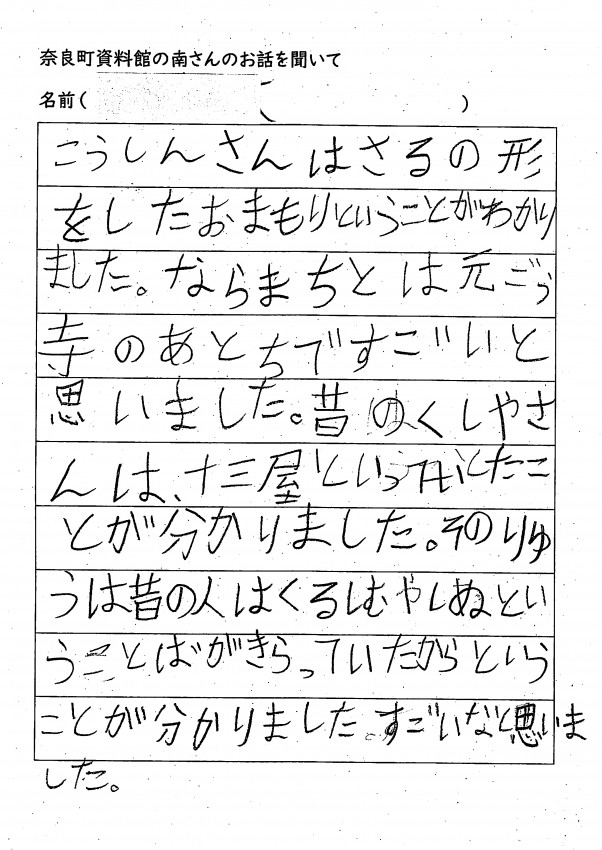 奈良町資料館の南さんのお話を聞いて
名前( )
こうしんさんはさるの形
をしたおまもりということがわかり
ました。ならまちとは元ごう
寺のあとちですごいと
思いました。昔のくしやさ
んは、十三屋といって
したこ
とが分かりました。そのりゆ
うは昔の人はくるしむやしぬとい
うことばがきらっていたからという
ことが分かりました。すごいなと思いま
した。